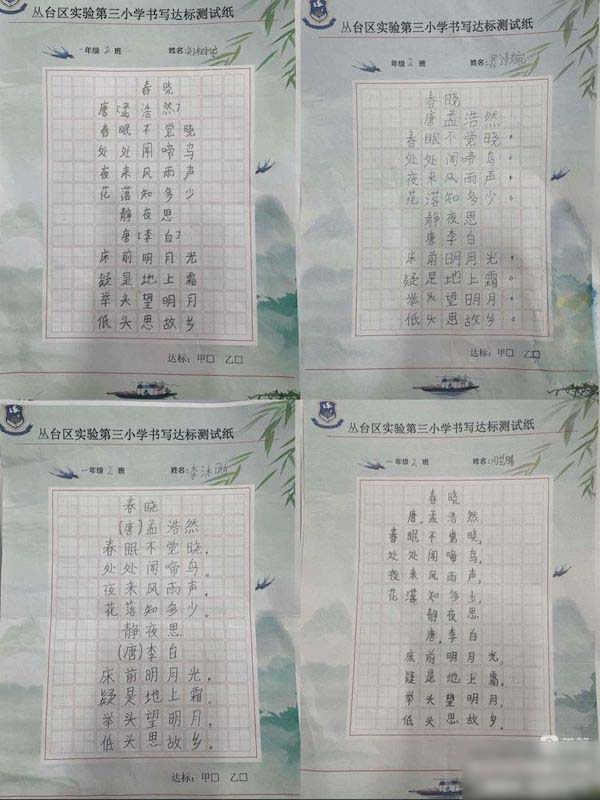 丛台区实验第三小学书写达标测试纸
一年级 2 班 姓名:
春晓
唐[孟浩然]
春眠不觉晓
处处闻啼鸟
夜来风雨声
花落知多少
静夜思
唐[李白]
床前明月光
疑是地上霜
举头望明月
低头思故乡
达标:甲□ 乙□
丛台区实验第三小学书写达标测试纸
一年级 2 班 姓名:
春晓
唐孟浩然
春眠不觉晓,
处处闻啼鸟。
夜来风雨声,
花落知多少。
静夜思
唐李白
床前明月光,
疑是地上霜。
举头望明月,
低头思故乡。
达标:甲□ 乙□
丛台区实验第三小学书写达标测试纸
一年级 2 班 姓名:李沐昕
春晓
(唐)孟浩然
春眠不觉晓,
处处闻啼鸟。
夜来风雨声,
花落知多少。
静夜思
(唐)李白
床前明月光,
疑是地上霜。
举头望明月,
低头思故乡。
达标:甲□ 乙□
丛台区实验第三小学书写达标测试纸
一年级 2 班 姓名:
春晓
唐,孟浩然
春眠不觉晓,
处处闻啼鸟,
夜来风雨声,
花落知多少,
静夜思
唐,李白
床前明月光,
疑是地上霜。
举头望明月,
低头思故乡。